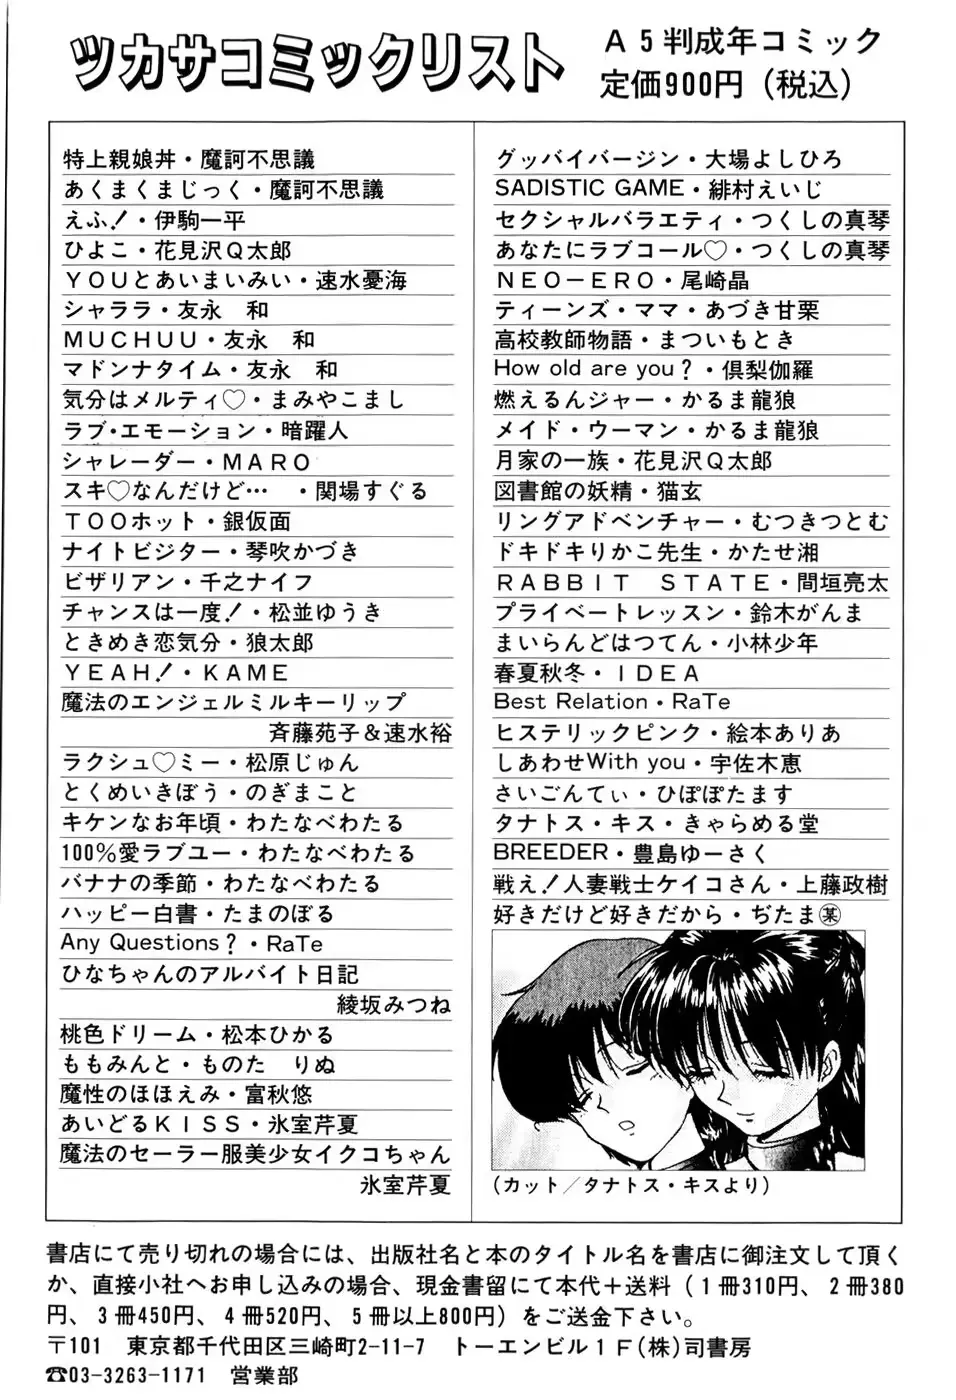 ツカサコミックリスト
A5判成年コミック
定価900円（税込）
特上親娘丼・魔訶不思議
あくまくまじっく・魔訶不思議
えふ！・伊駒一平
ひよこ・花見沢Ｑ太郎
ＹＯＵとあいまいみい・速水憂海
シャララ・友永　和
ＭＵＣＨＵＵ・友永　和
マドンナタイム・友永　和
気分はメルティ♡・まみやこまし
ラブ・エモーション・暗躍人
シャレーダー・ＭＡＲＯ
スキ♡なんだけど…　・関場すぐる
ＴＯＯホット・銀仮面
ナイトビジター・琴吹かづき
ビザリアン・千之ナイフ
チャンスは一度！・松並ゆうき
ときめき恋気分・狼太郎
ＹＥＡＨ！・ＫＡＭＥ
魔法のエンジェルミルキーリップ
斉藤苑子＆速水裕
ラクシュ♡ミー・松原じゅん
とくめいきぼう・のぎまこと
キケンなお年頃・わたなべわたる
100％愛ラブユー・わたなべわたる
バナナの季節・わたなべわたる
ハッピー白書・たまのぼる
Any Questions？・RaTe
ひなちゃんのアルバイト日記
綾坂みつね
桃色ドリーム・松本ひかる
ももみんと・ものた　りぬ
魔性のほほえみ・富秋悠
あいどるＫＩＳＳ・氷室芹夏
魔法のセーラー服美少女イクコちゃん
氷室芹夏
グッバイバージン・大場よしひろ
SADISTIC GAME・緋村えいじ
セクシャルバラエティ・つくしの真琴
あなたにラブコール♡・つくしの真琴
ＮＥＯ－ＥＲＯ・尾崎晶
ティーンズ・ママ・あづき甘栗
高校教師物語・まついもとき
How old are you？・倶梨伽羅
燃えるんジャー・かるま龍狼
メイド・ウーマン・かるま龍狼
月家の一族・花見沢Ｑ太郎
図書館の妖精・猫玄
リングアドベンチャー・むつきつとむ
ドキドキりかこ先生・かたせ湘
ＲＡＢＢＩＴ　ＳＴＡＴＥ・間垣亮太
プライベートレッスン・鈴木がんま
まいらんどはつてん・小林少年
春夏秋冬・ＩＤＥＡ
Best Relation・RaTe
ヒステリックピンク・絵本ありあ
しあわせWith you・宇佐木恵
さいごんてぃ・ひぽぽたます
タナトス・キス・きゃらめる堂
BREEDER・豊島ゆーさく
戦え！人妻戦士ケイコさん・上藤政樹
好きだけど好きだから・ぢたま㊣
（カット／タナトス・キスより）
書店にて売り切れの場合には、出版社名と本のタイトル名を書店に御注文して頂く
か、直接小社へお申し込みの場合、現金書留にて本代＋送料（１冊310円、２冊380
円、３冊450円、４冊520円、５冊以上800円）をご送金下さい。
〒101　東京都千代田区三崎町2-11-7　トーエンビル１Ｆ(株)司書房
☎03-3263-1171　営業部